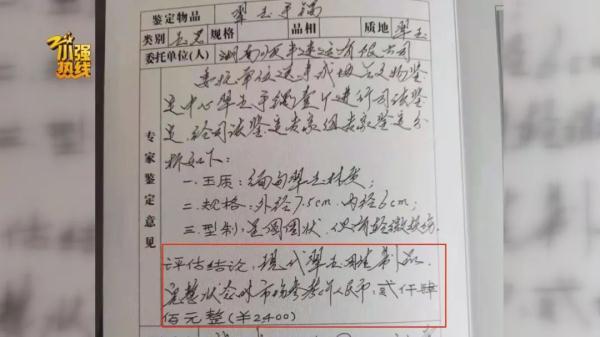 小强热线
鉴定物品 翠玉手镯
类别 玉器 规格 品相 质地 翠玉
委托单位(人) 湖南 有限公司
委托单位送来 文物鉴
定中心翠玉手镯壹个进行司法鉴
定，经司法鉴定专家组专家鉴定分
析如下：
专家鉴定意见
一.玉质：缅甸翠玉材质；
二.规格：外径7.5cm.内径6cm；
三.型制：呈圆圈状.
评估结论：现代翠玉 制品.
完整状态的市场参考价人民币：贰仟肆
佰元整(￥2,400)